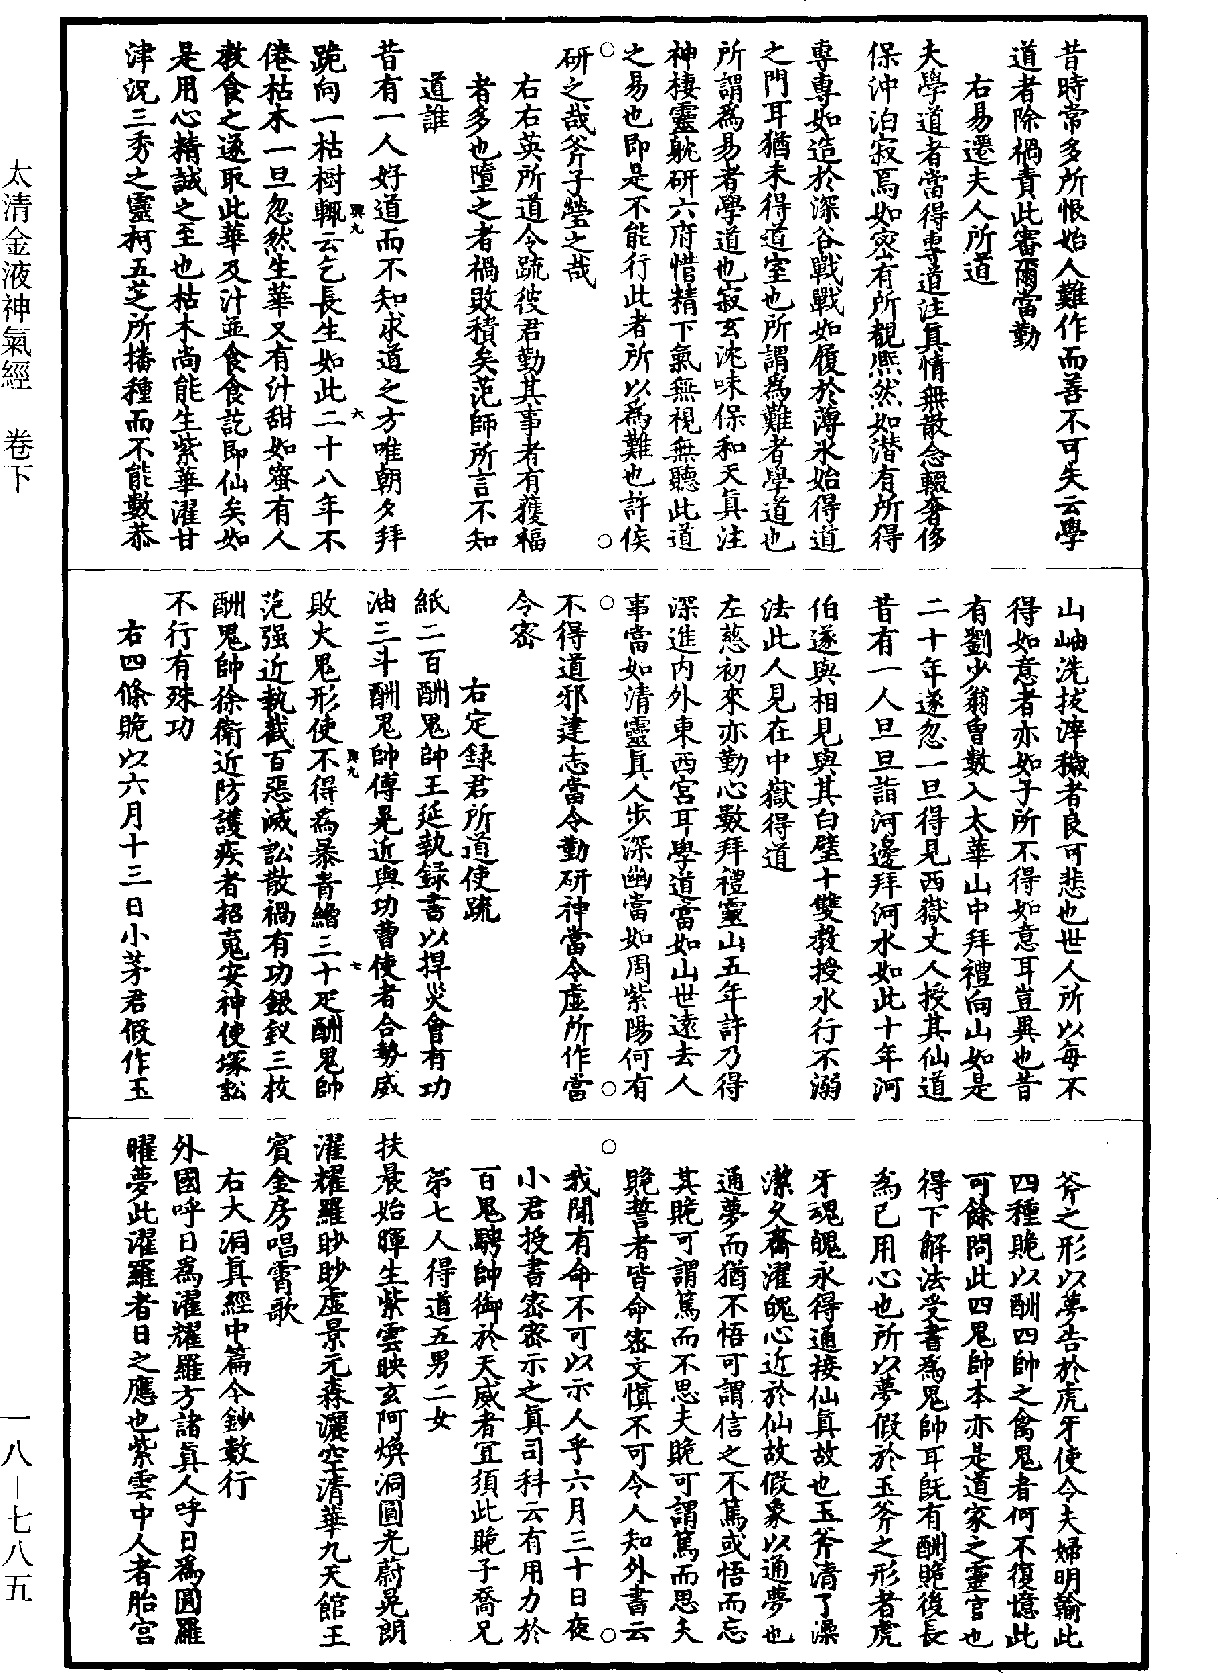 昔時常多所恨始人難作而善不可失云學
道者除禍責此審爾當勤
右易遷夫人所道
夫學道者當得專道注真情無散念輟奢侈
保沖泊寂焉如密有所覩熙然如潛有所得
專專如造於深谷戰戰如履於薄氷始得道
之門耳猶未得道室也所謂為難者學道也
所謂為易者學道也寂玄沈味保和天真注
神棲靈躭研六府惜精下氣無視無聽此道
之易也即是不能行此者所以為難也許侯
研之哉斧子瑩之哉
右右英所道令疏彼君勤其事者有獲福
者多也墮之者禍敗積矣范師所言不知
道誰
昔有一人好道而不知求道之方唯朝夕拜
跪向一枯樹輒云乞長生如此二十八年不
倦枯木一旦忽然生華又有汁甜如蜜有人
教食之遂取此華及汁並食食訖即仙矣如
是用心精誠之至也枯木尚能生紫華濯甘
津況三秀之靈柯五芝所播種而不能數恭
興九
六
山岫洗拔滓穢者良可悲也世人所以每不
得如意者亦如子所不得如意耳豈異也昔
有劉少翁曾數入太華山中拜禮向山如是
二十年遂忽一旦得見西嶽丈人授其仙道
昔有一人旦旦詣河邊拜河水如此十年河
伯遂與相見與其白璧十雙教授水行不溺
法此人見在中嶽得道
左慈初來亦勤心數拜禮靈山五年許乃得
深進內外東西宮耳學道當如山世遠去人
事當如清靈真人步深幽當如周紫陽何有
不得道邪建志當令勤研神當令虛所作當
令密
右定錄君所道使疏
紙二百酬鬼帥王延執錄書以捍災會有功
油三斗酬鬼帥傅晃近與功曹使者合勢威
敗火鬼形使不得為暴青繒三十疋酬鬼帥
范强近執截百惡滅訟散禍有功銀釵三枚
酬鬼帥徐衛近防護疾者招𩲸安神使塚訟
不行有殊功
右四條貺以六月十三日小茅君假作玉
興九
七
斧之形以夢告於虎牙使令夫婦明輸此
四種貺以酬四帥之禽鬼者何不復憶此
可餘問此四鬼帥本亦是道家之靈官也
得下解法受書為鬼帥耳既有酬貺後長
為己用心也所以夢假於玉斧之形者虎
牙魂魄永得通接仙真故也玉斧清了澡
潔久齋濯魄心近於仙故假象以通夢也
通夢而猶不悟可謂信之不篤或悟而忘
其貺可謂篤而不思夫貺可謂篤而思夫
貺誓者皆命密文慎不可令人知外書云
我聞有命不可以示人乎六月三十日夜
小君授書密密示之真司科云有用力於
百鬼騁帥御於天威者宜須此貺子喬兄
第七人得道五男二女
扶晨始暉生紫雲映玄阿煥洞圓光蔚晃朗
濯耀羅眇眇虛景元森灑空清華九天館玉
賓金房唱霄歌
右大洞真經中篇今鈔數行
外國呼日為濯耀羅方諸真人呼日為圓羅
曜夢此濯羅者日之應也紫雲中人者胎宮
太清金液神氣經　卷下
一八—七八五